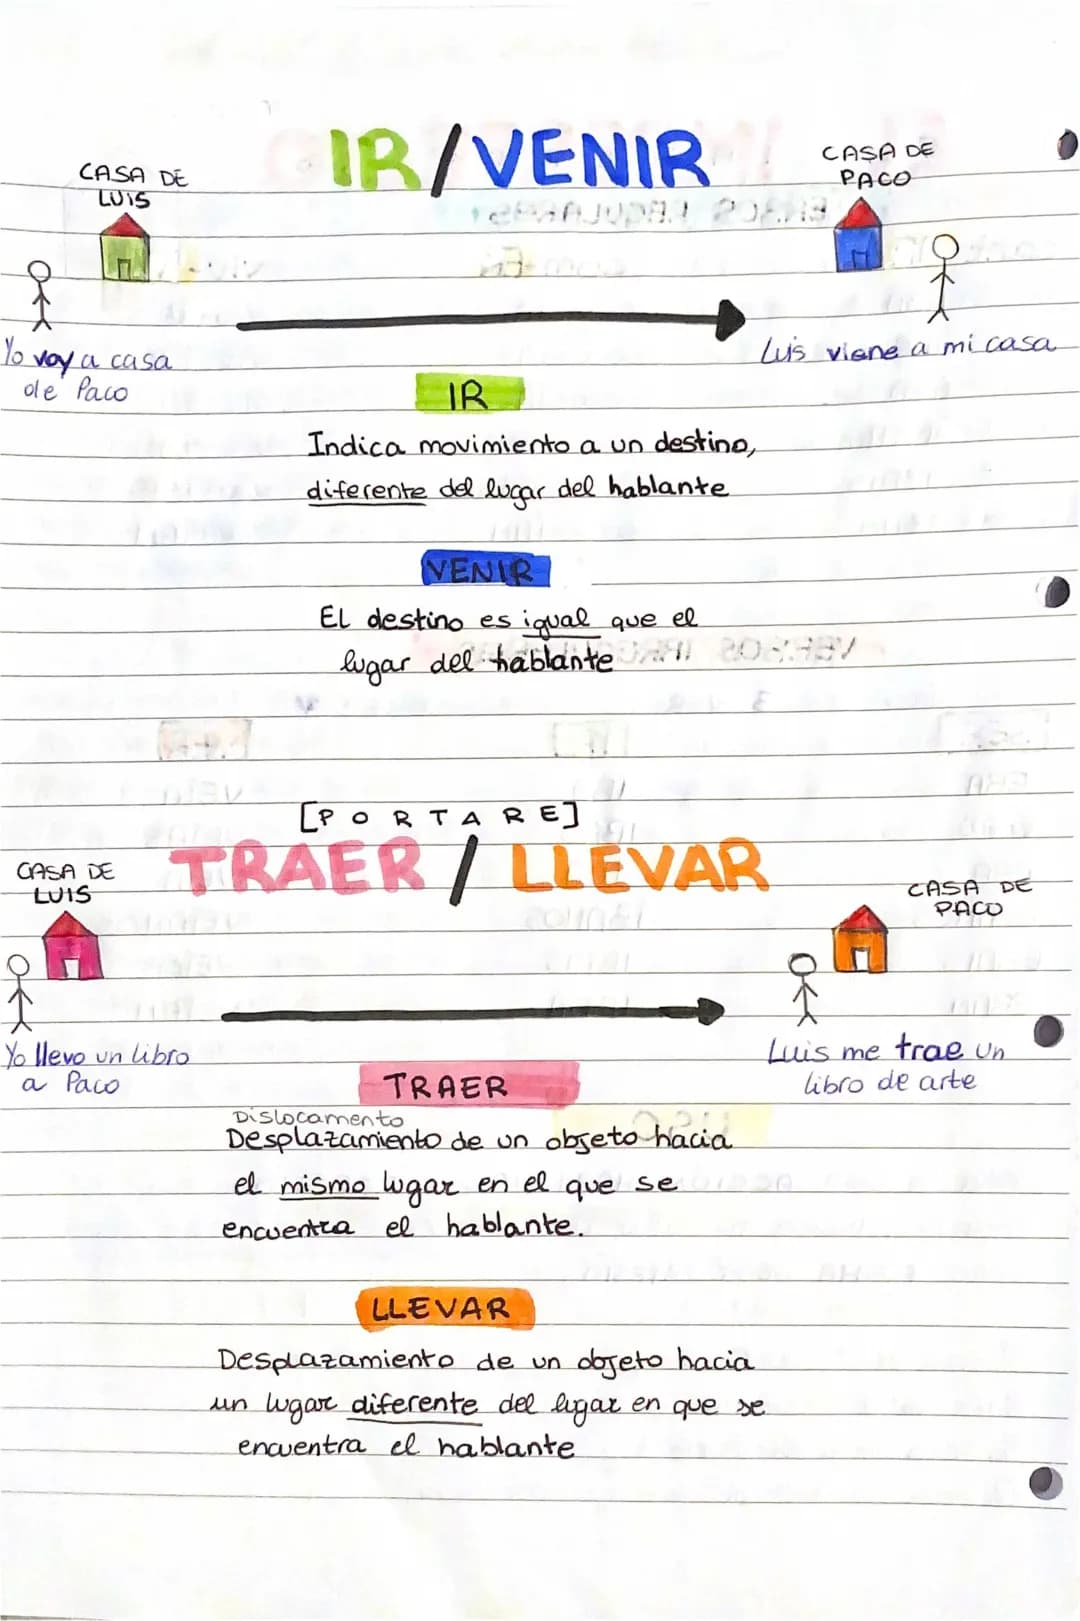 IR/VENIR
CASA DE
LUIS
CASA DE
PACO
Yo voy a casa
de Paco
Luis viene a mi casa
IR
Indica movimiento a un destino,
diferente del lugar del hablante
VENIR
El destino es igual que el
lugar del hablante
[PORTARE]
TRAER / LLEVAR
CASA DE
LUIS
CASA DE
PACO
Yo llevo un libro
a Paco
Luis me trae un
libro de arte
TRAER
Dislocamento
Desplazamiento de un objeto hacia
el mismo lugar en el que se
encuentra el hablante.
LLEVAR
Desplazamiento de un objeto hacia
un lugar diferente del lugar en que se
encuentra el hablante